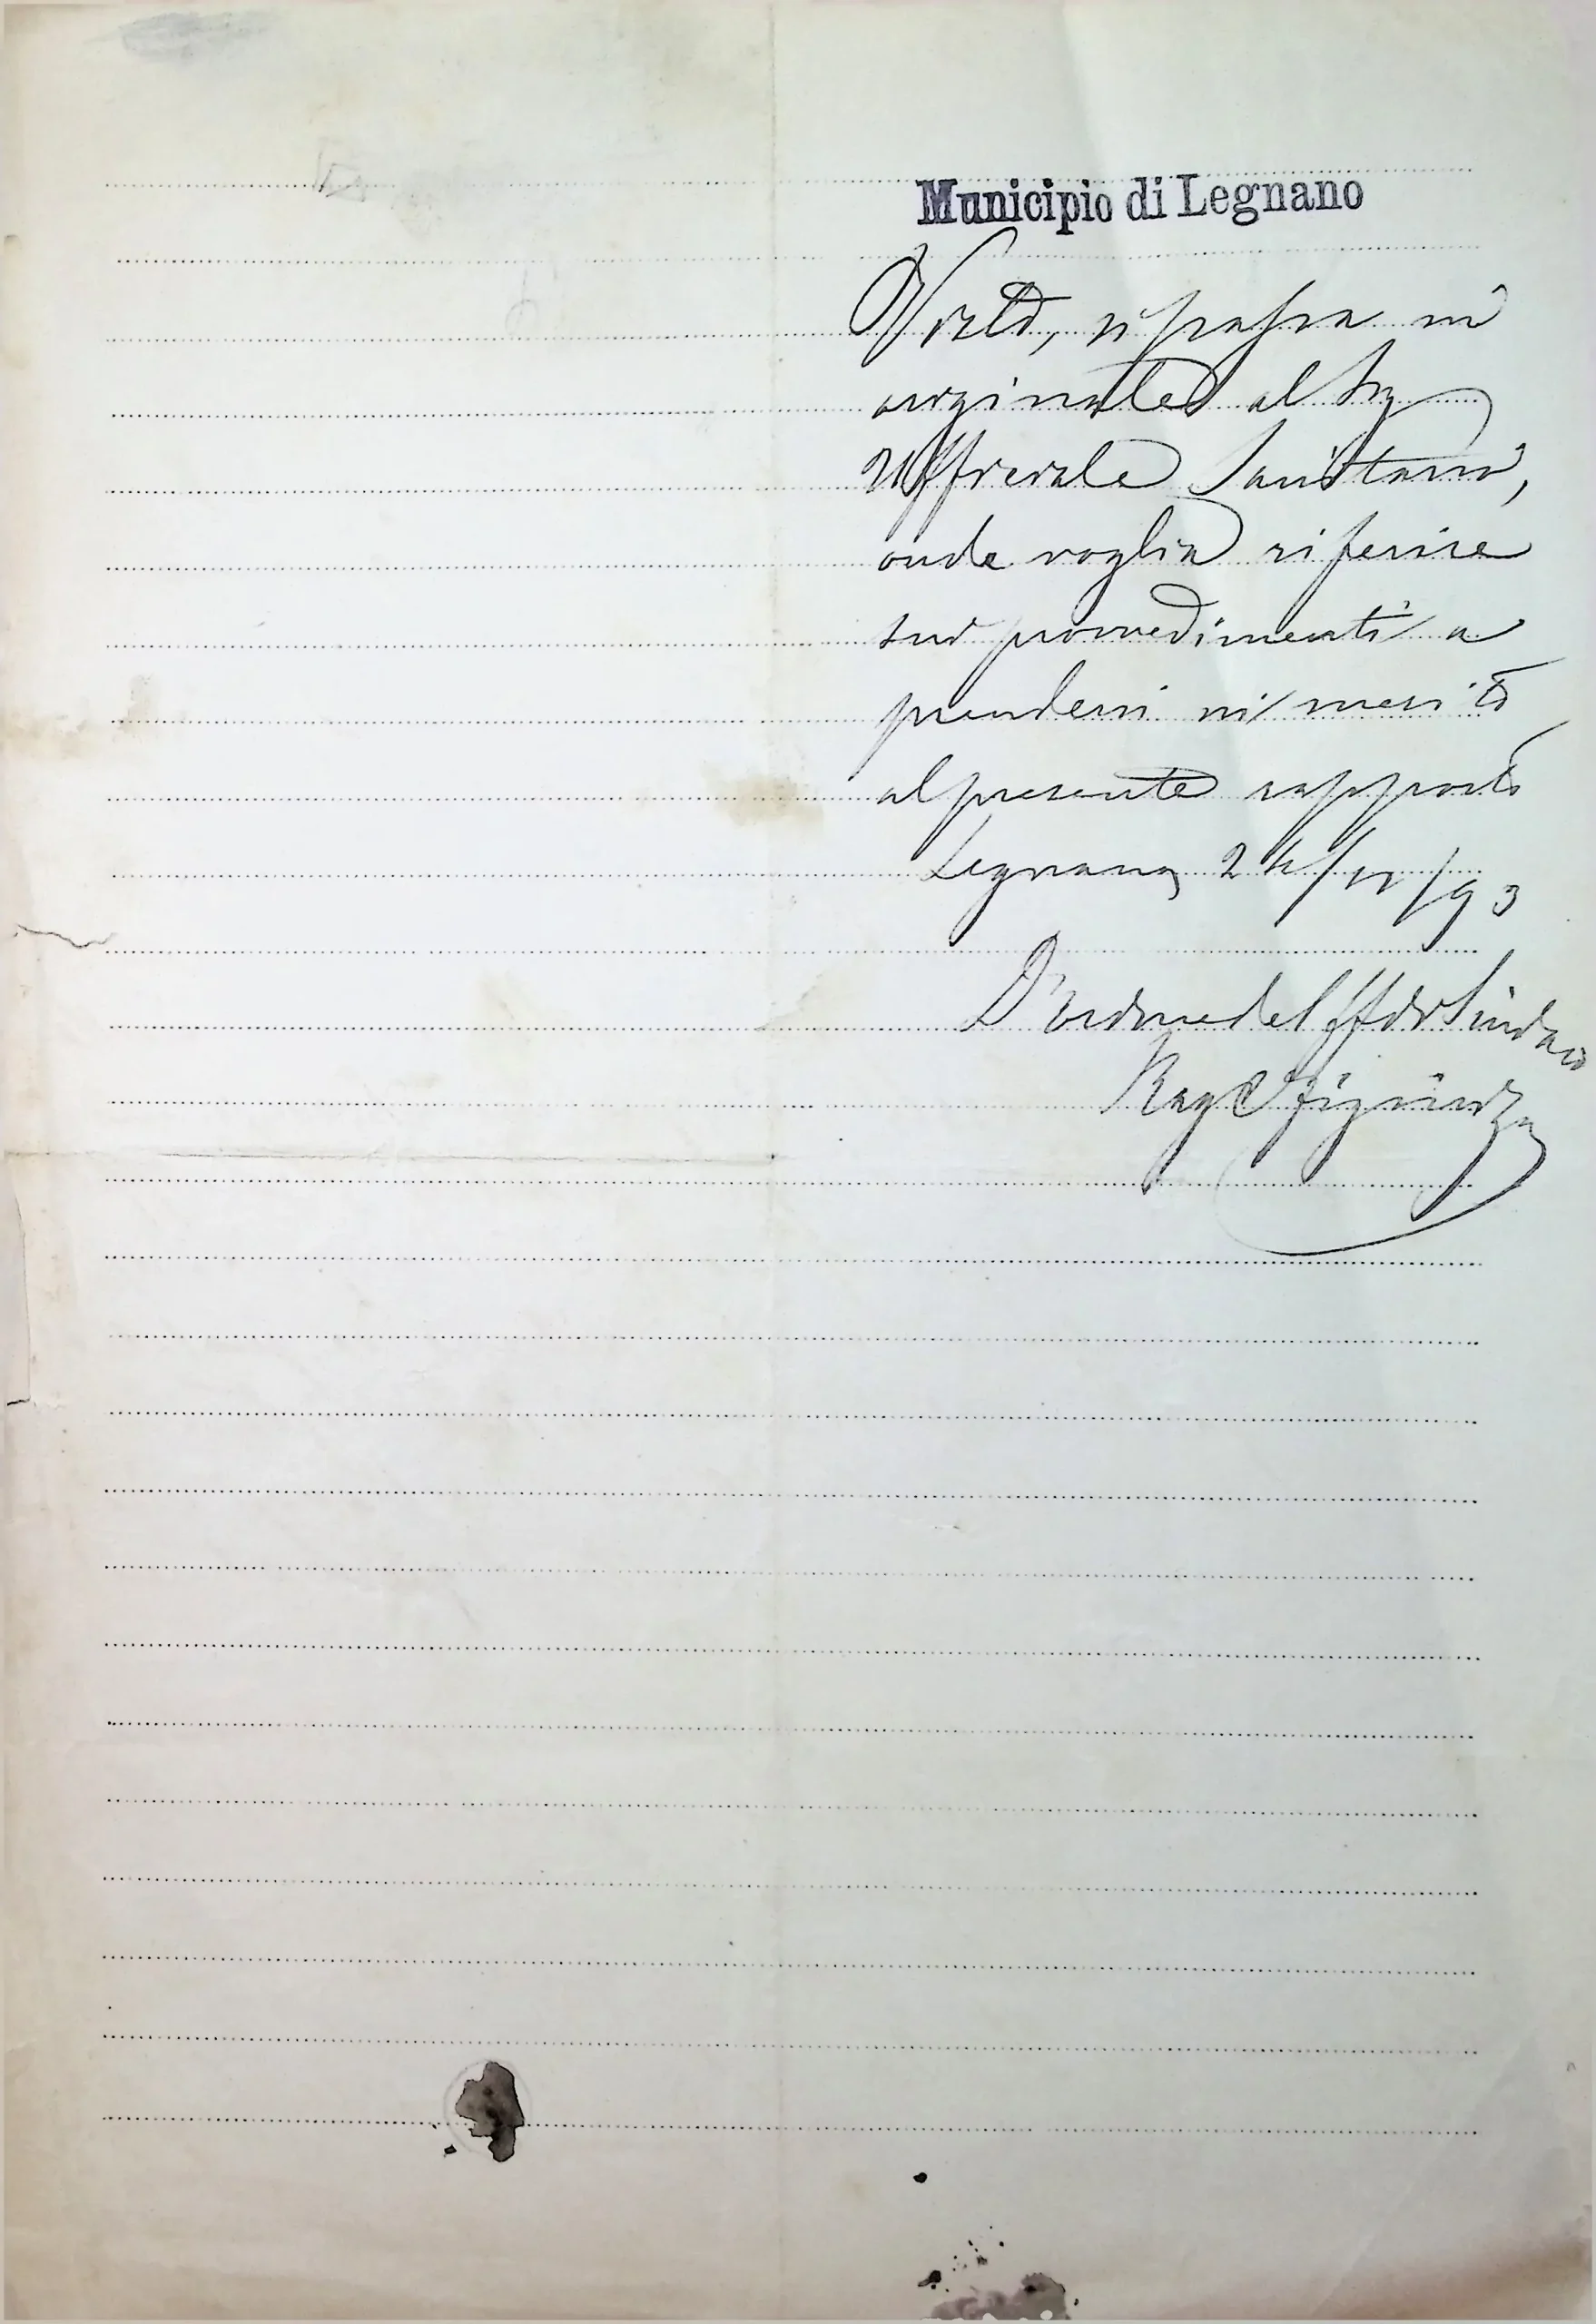 Municipio di Legnano
Visto, si passa in
originale al Sig
Ufficiale Sanitario,
onde voglia riferire
sui provvedimenti a
prendersi in merito
al presente rapporto
Legnano, 24/11/93
D'ordine del ff di Sindaco
Rag